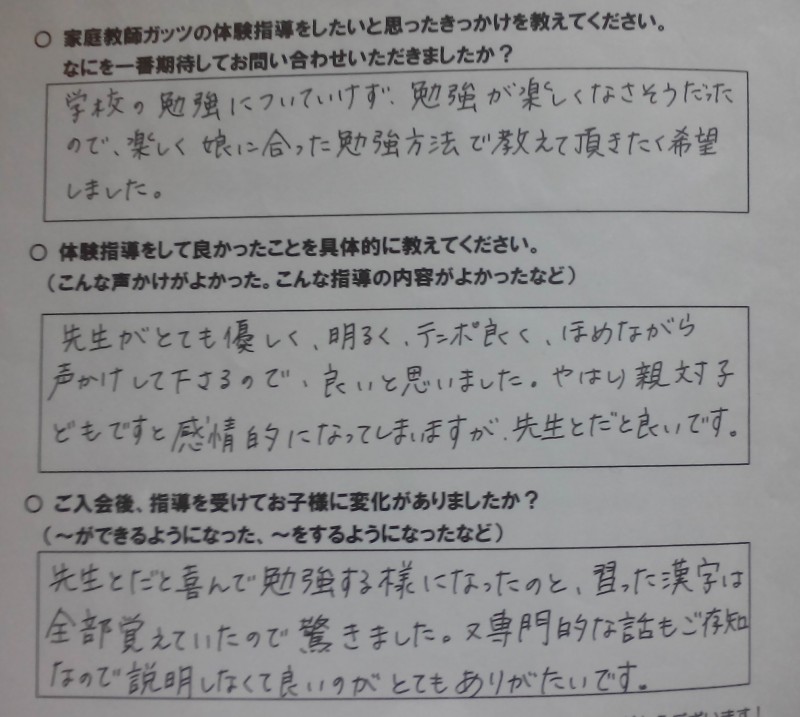 ○ 家庭教師ガッツの体験指導をしたいと思ったきっかけを教えてください。
なにを一番期待してお問い合わせいただきましたか？
学校の勉強についていけず、勉強が楽しくなさそうだった
ので、楽しく娘に合った勉強方法で教えて頂きたく希望
しました。
○ 体験指導をして良かったことを具体的に教えてください。
（こんな声かけがよかった。こんな指導の内容がよかったなど）
先生がとても優しく、明るく、テンポ良く、ほめながら
声かけして下さるので、良いと思いました。やはり親対子
どもですと感情的になってしまいますが、先生とだと良いです。
○ ご入会後、指導を受けてお子様に変化がありましたか？
（～ができるようになった、～をするようになったなど）
先生とだと喜んで勉強する様になったのと、習った漢字は
全部覚えていたので驚きました。又専門的な話もご存知
なので説明しなくて良いのがとてもありがたいです。
ございます！